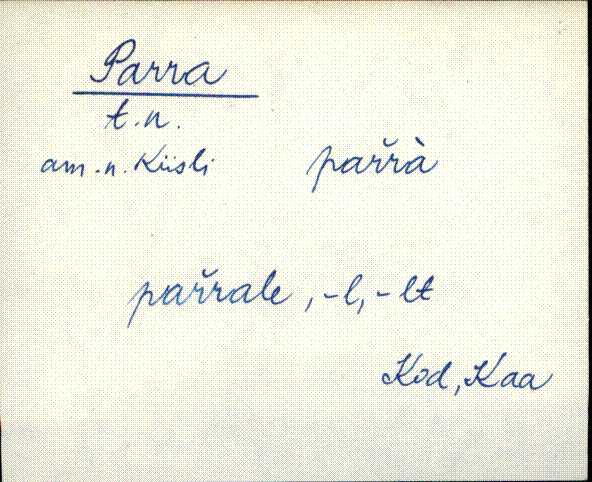 Parra
t.n.
am.n. Kiisli pařrà
pařrale, -l, -lt
Kod, Kaa